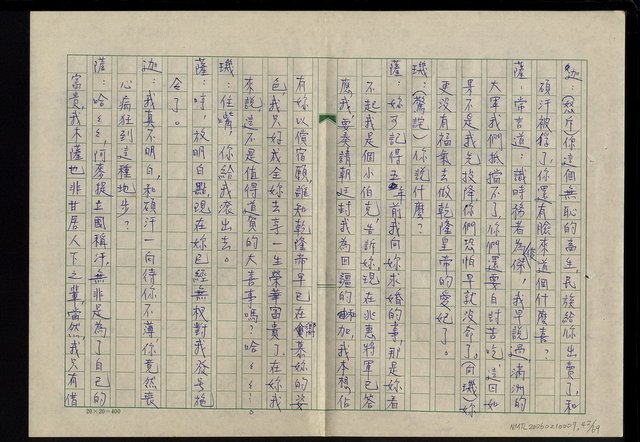 迦：(怒斥)你這個無恥的畜生民族給你出賣了，和
碩汗被俘了，你還有臉來道個什麼喜？
薩：常言道：識時務者為俊傑，我早說過滿洲的
大軍我們抵擋不了，你們還要自討苦吃，這回如
果不是我先投降你們恐怕早就沒命了，(向璣)妳
更沒有福氣去做乾隆皇帝的愛妃了。
璣：(驚詫)你說什麼？
薩：妳可記得五年前我向妳求婚的事，那是妳看
不起我是個小伯克，告訴妳，現在兆惠將軍已答
應我，要奏請朝廷封我為回疆的 加，我本想佔
有妳以償宿願，誰知乾隆帝早已在嚮慕妳的姿
色，我只好成全妳去享一生榮華富貴了，在妳我
來說這不是值得道賀的大喜事嗎？哈〻〻！
璣：住嘴，你給我滾出去。
薩：哼，放明白點現在妳已經無权對我發号施
令了。
迦：我真不明白，和碩汗一向待你不薄，你竟然喪
心病狂到這種地步？
薩：哈〻〻，阿麥提立國稱汗，無非是為了自己的
富貴，我木薩也非甘居人下之輩，當然，我只有借
20×20=400
NMTL20060210009, 43/69